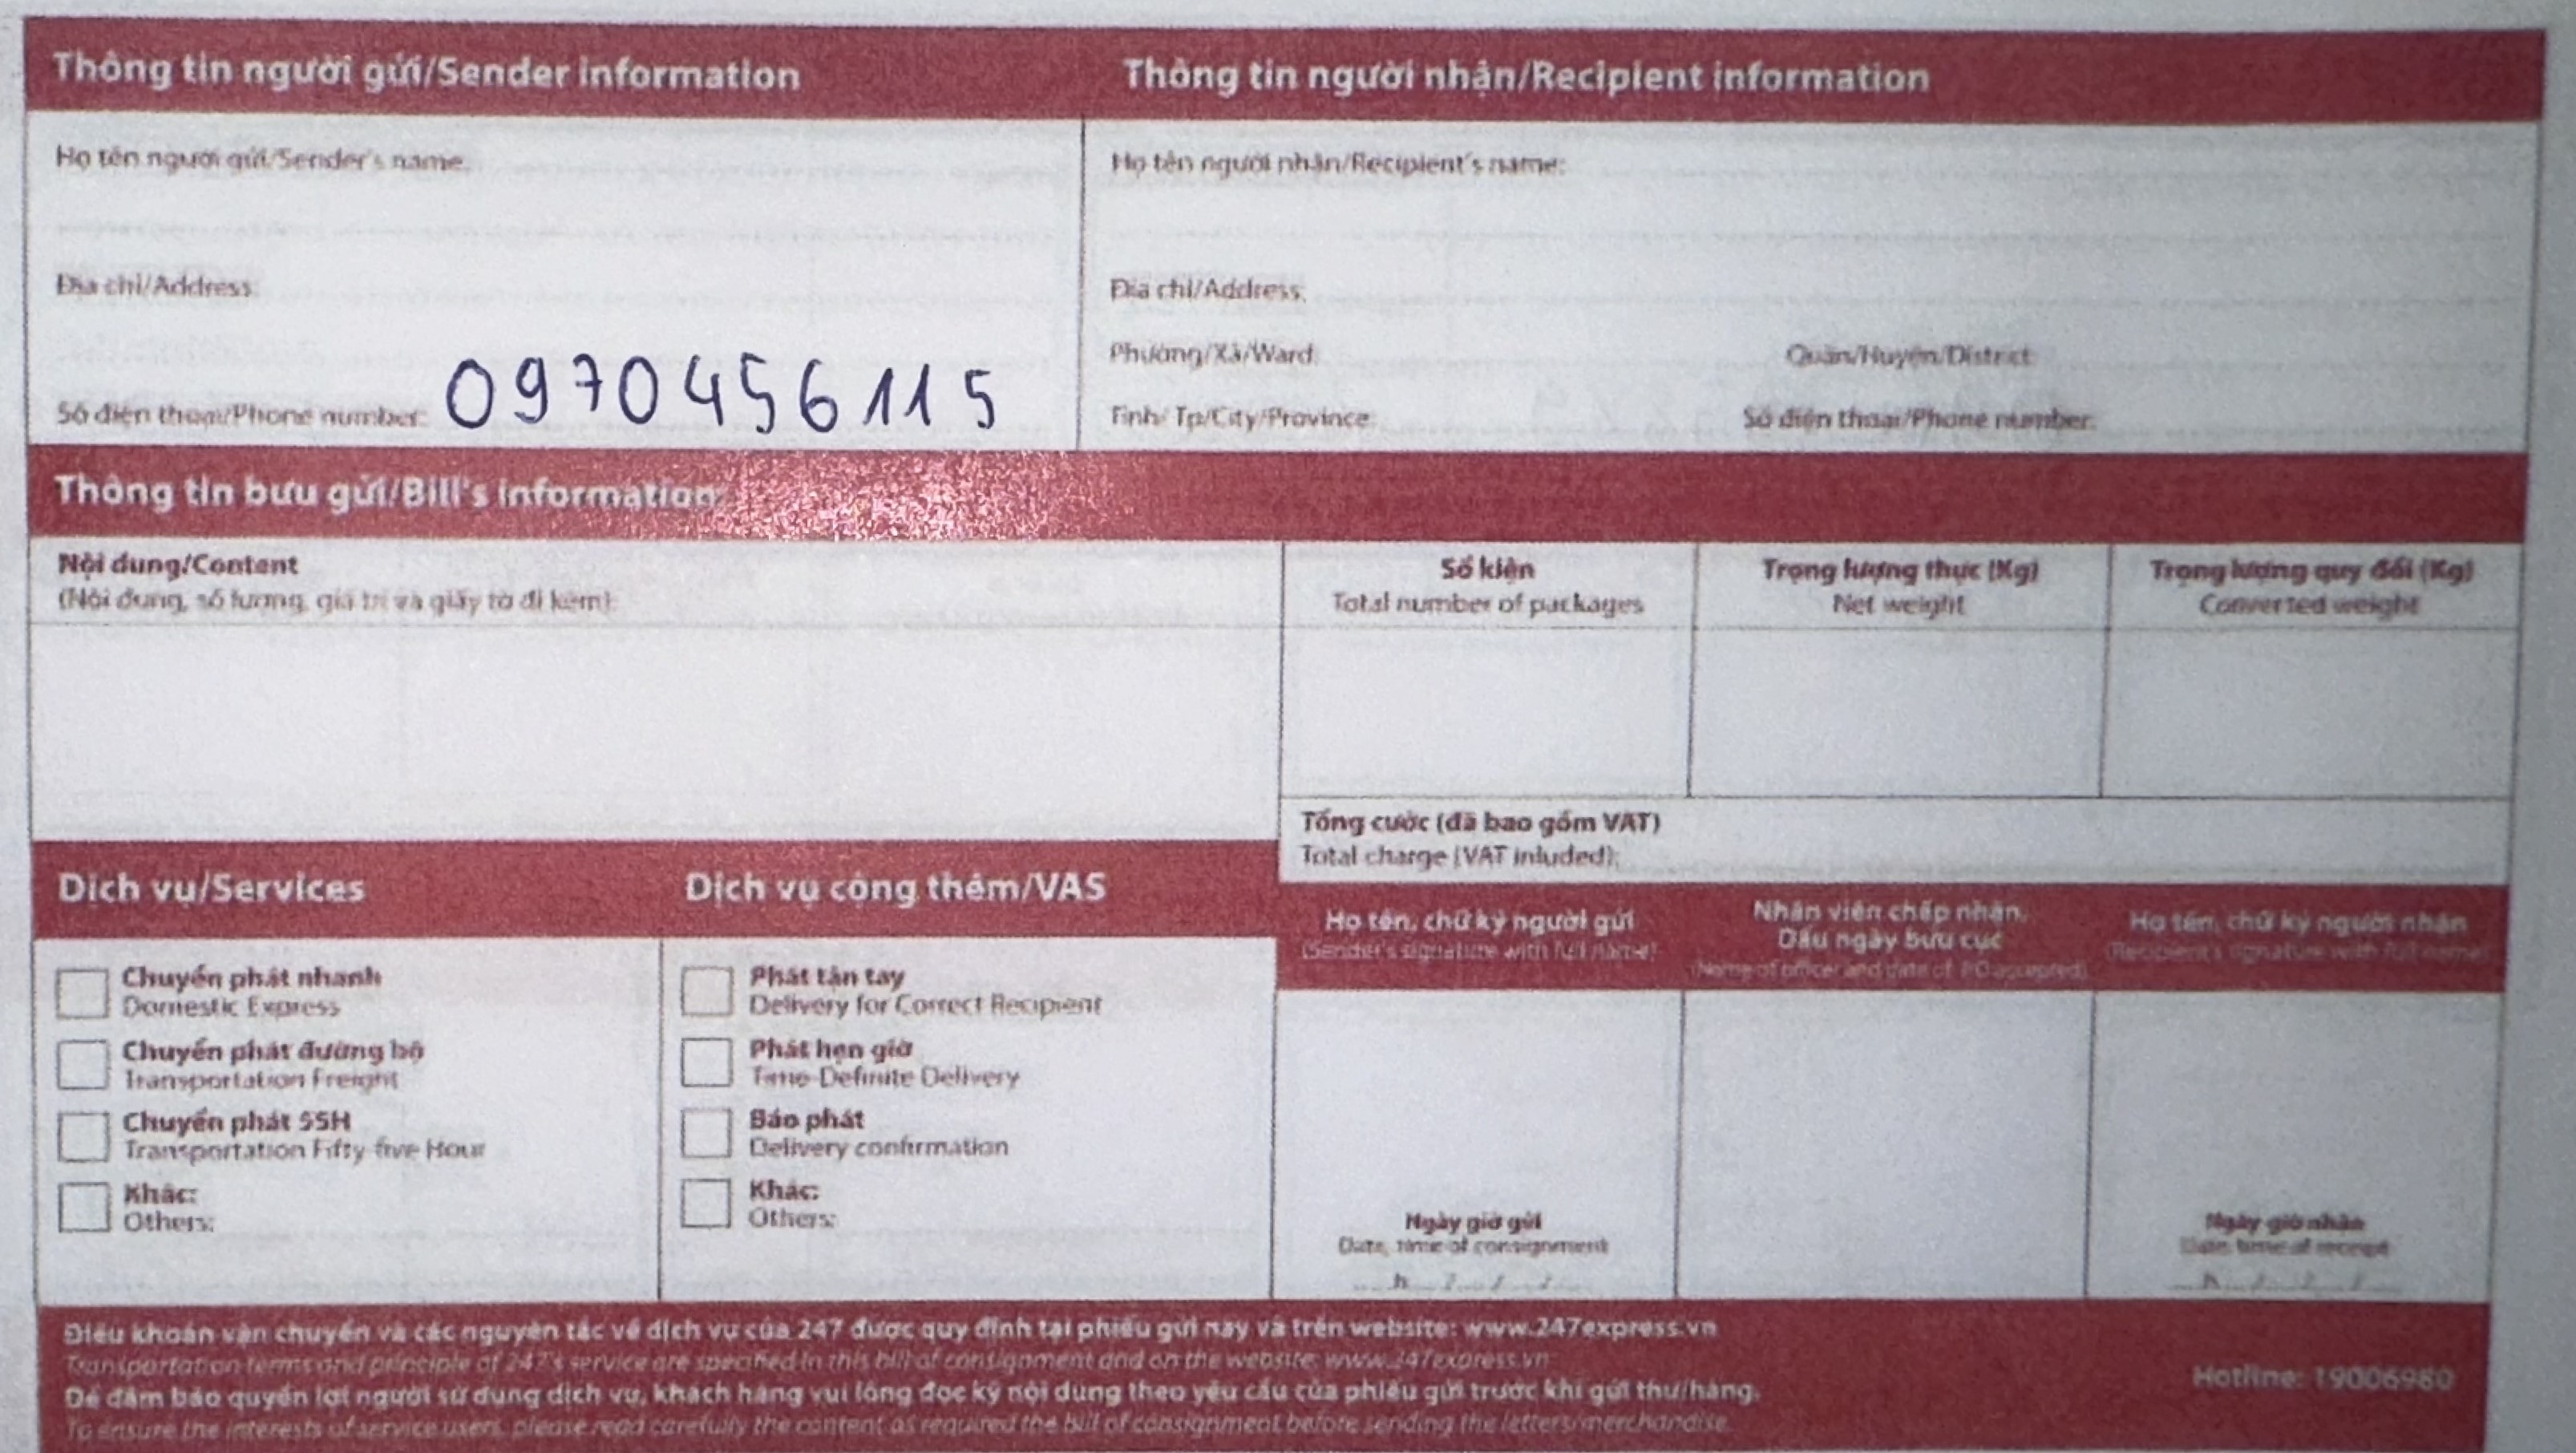 Thông tin người gửi/Sender information
Thông tin người nhận/Recipient information
Họ tên người gửi/Sender's name:
Họ tên người nhận/Recipient's name:
Địa chỉ/Address:
Địa chỉ/Address:
Phường/Xã/Ward:
Quận/Huyện/District:
Số điện thoại/Phone number: 0970456115
Tỉnh/ Tp/City/Province:
Số điện thoại/Phone number:
Thông tin bưu gửi/Bill's information
Nội dung/Content
(Nội dung, số lượng, giá trị và giấy tờ đi kèm):
Số kiện
Total number of packages
Trọng lượng thực (Kg)
Net weight
Trọng lượng quy đổi (Kg)
Converted weight
Tổng cước (đã bao gồm VAT)
Total charge (VAT inluded):
Dịch vụ/Services
Chuyển phát nhanh
Domestic Express
Chuyển phát đường bộ
Transportation Freight
Chuyển phát 55H
Transportation Fifty-five Hour
Khác:
Others:
Dịch vụ cộng thêm/VAS
Phát tận tay
Delivery for Correct Recipient
Phát hẹn giờ
Time-Definite Delivery
Báo phát
Delivery confirmation
Khác:
Others:
Họ tên, chữ ký người gửi
(Sender's signature with full name)
Ngày giờ gửi
Date, time of consignment
.....h..../..../....
Nhân viên chấp nhận,
Dấu ngày bưu cục
(Name of officer and date of PO accepted)
Họ tên, chữ ký người nhận
(Recipient's signature with full name)
Ngày giờ nhận
Date, time of receipt
.....h..../..../....
Điều khoản vận chuyển và các nguyên tắc về dịch vụ của 247 được quy định tại phiếu gửi này và trên website: www.247express.vn
Transportation terms and principle of 247's service are specified in this bill of consignment and on the website: www.247express.vn
Để đảm bảo quyền lợi người sử dụng dịch vụ, khách hàng vui lòng đọc kỹ nội dung theo yêu cầu của phiếu gửi trước khi gửi thư/hàng.
To ensure the interests of service users, please read carefully the content as required the bill of consignment before sending the letters/merchandise.
Hotline: 19006980